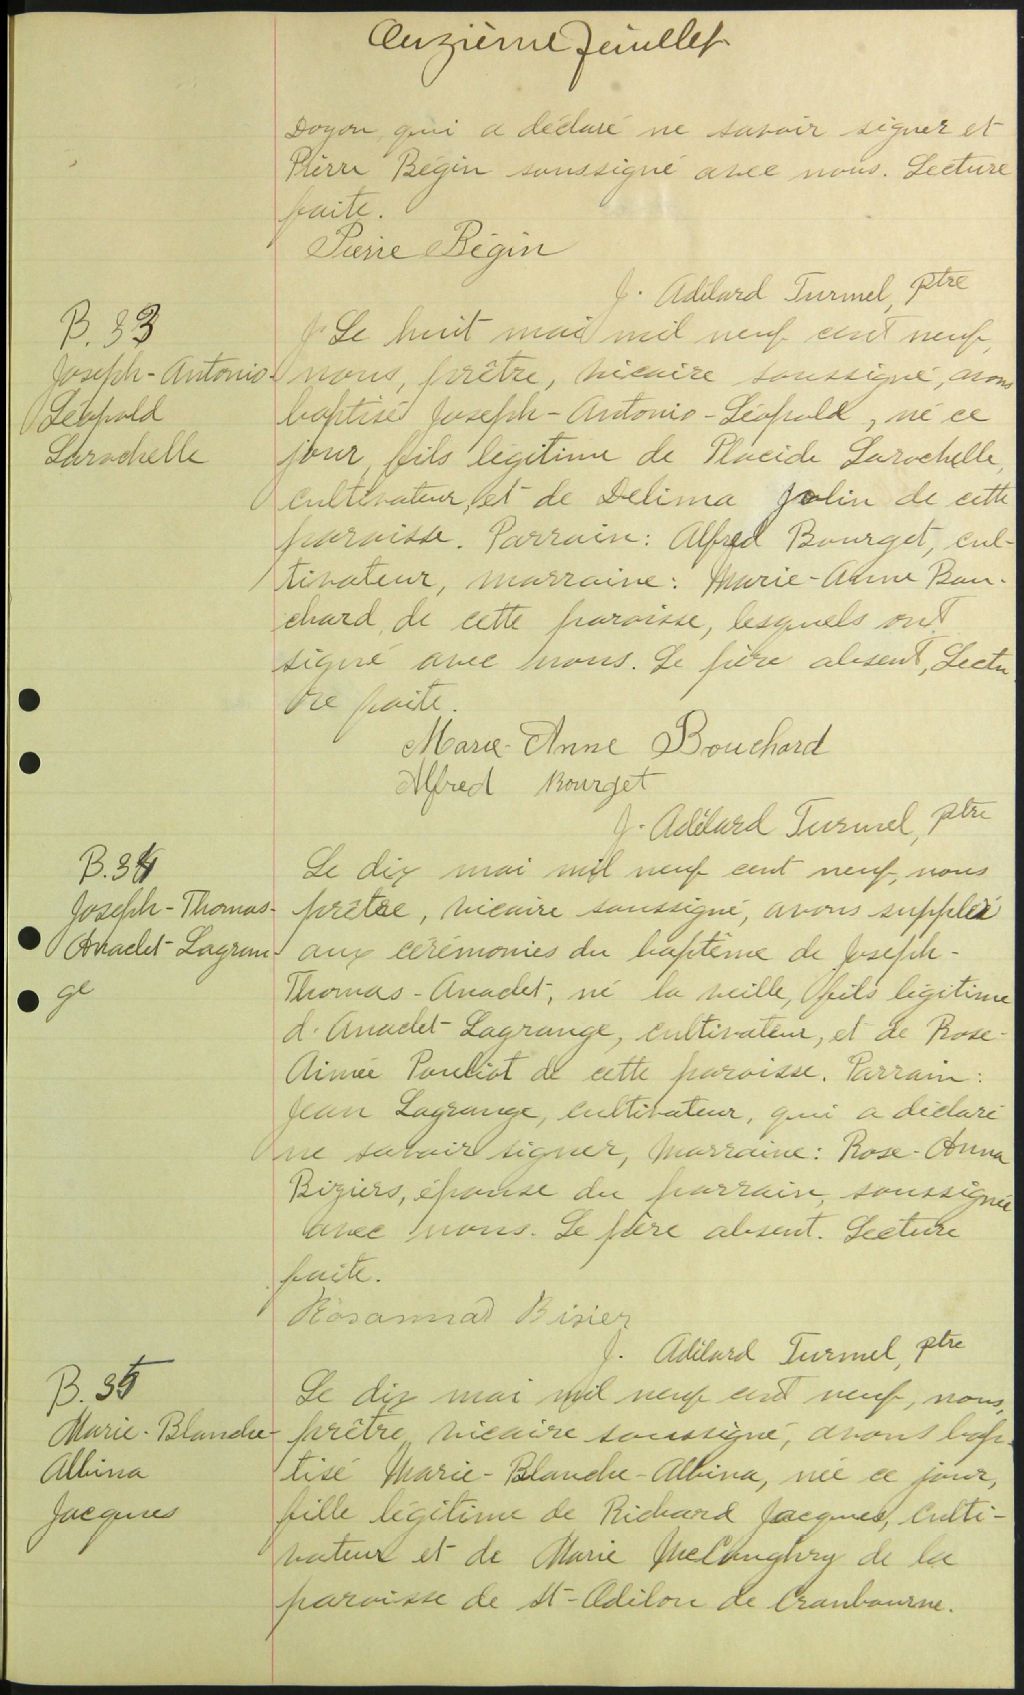 Onzième feuillet
Doyon, qui a déclaré ne savoir signer et
Pierre Bégin soussigné avec nous. Lecture
faite.
Pierre Bégin
J. Adélard Turmel, ptre
B. 33
Joseph-Antonio-
Léopold
Larochelle
Le huit mai mil neuf cent neuf,
nous, prêtre, vicaire soussigné, avons
baptisé Joseph-Antonio-Léopold, né ce
jour, fils légitime de Placide Larochelle,
cultivateur, et de Delima Jolin de cette
paroisse. Parrain: Alfred Bourget, cul-
tivateur, marraine: Marie-Anne Bou-
chard, de cette paroisse, lesquels ont
signé avec nous. Le père absent, Lectu
re faite.
Marie-Anne Bouchard
Alfred Bourget
J. Adélard Turmel, ptre
B. 34
Joseph-Thomas-
Anaclet Lagran-
ge
Le dix mai mil neuf cent neuf, nous
prêtre, vicaire soussigné, avons suppléé
aux cérémonies du baptême de Joseph-
Thomas-Anaclet, né la veille, fils légitime
d'Anaclet Lagrange, cultivateur, et de Rose-
Aimée Pouliot de cette paroisse. Parrain:
Jean Lagrange, cultivateur, qui a déclaré
ne savoir signer, Marraine: Rose-Anna
Biziers, épouse du parrain, soussignée
avec nous. Le père absent. Lecture
faite.
Rosanna Bisier
J. Adélard Turmel, ptre
B. 35
Marie-Blanche-
Albina
Jacques
Le dix mai mil neuf cent neuf, nous,
prêtre, vicaire soussigné, avons bap-
tisé Marie-Blanche-Albina, née ce jour,
fille légitime de Richard Jacques, culti-
vateur et de Marie McCaughry de la
paroisse de St-Odilon de Cranbourne.